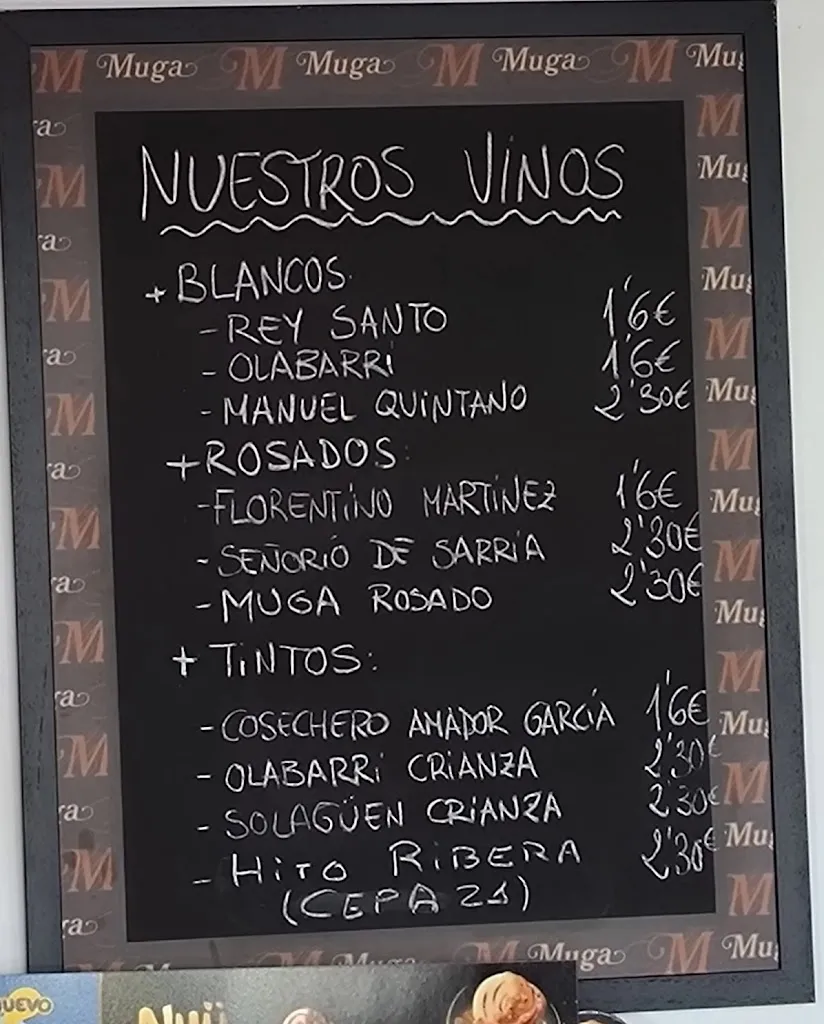 Muga M Muga M Muga M Mug
NUESTROS VINOS
+ BLANCOS.
- REY SANTO 1'6€
- OLABARRI 1'6€
- MANUEL QUINTANO 2'30€
+ ROSADOS:
- FLORENTINO MARTINEZ 1'6€
- SEÑORIO DE SARRÍA 2'30€
- MUGA ROSADO 2'30€
+ TINTOS:
- COSECHERO AMADOR GARCÍA 1'6€
- OLABARRI CRIANZA 2'30€
- SOLAGÜEN CRIANZA 2'30€
- HITO RIBERA 2'30€
(CEPA 21)
Muga M Mug
NUEVO